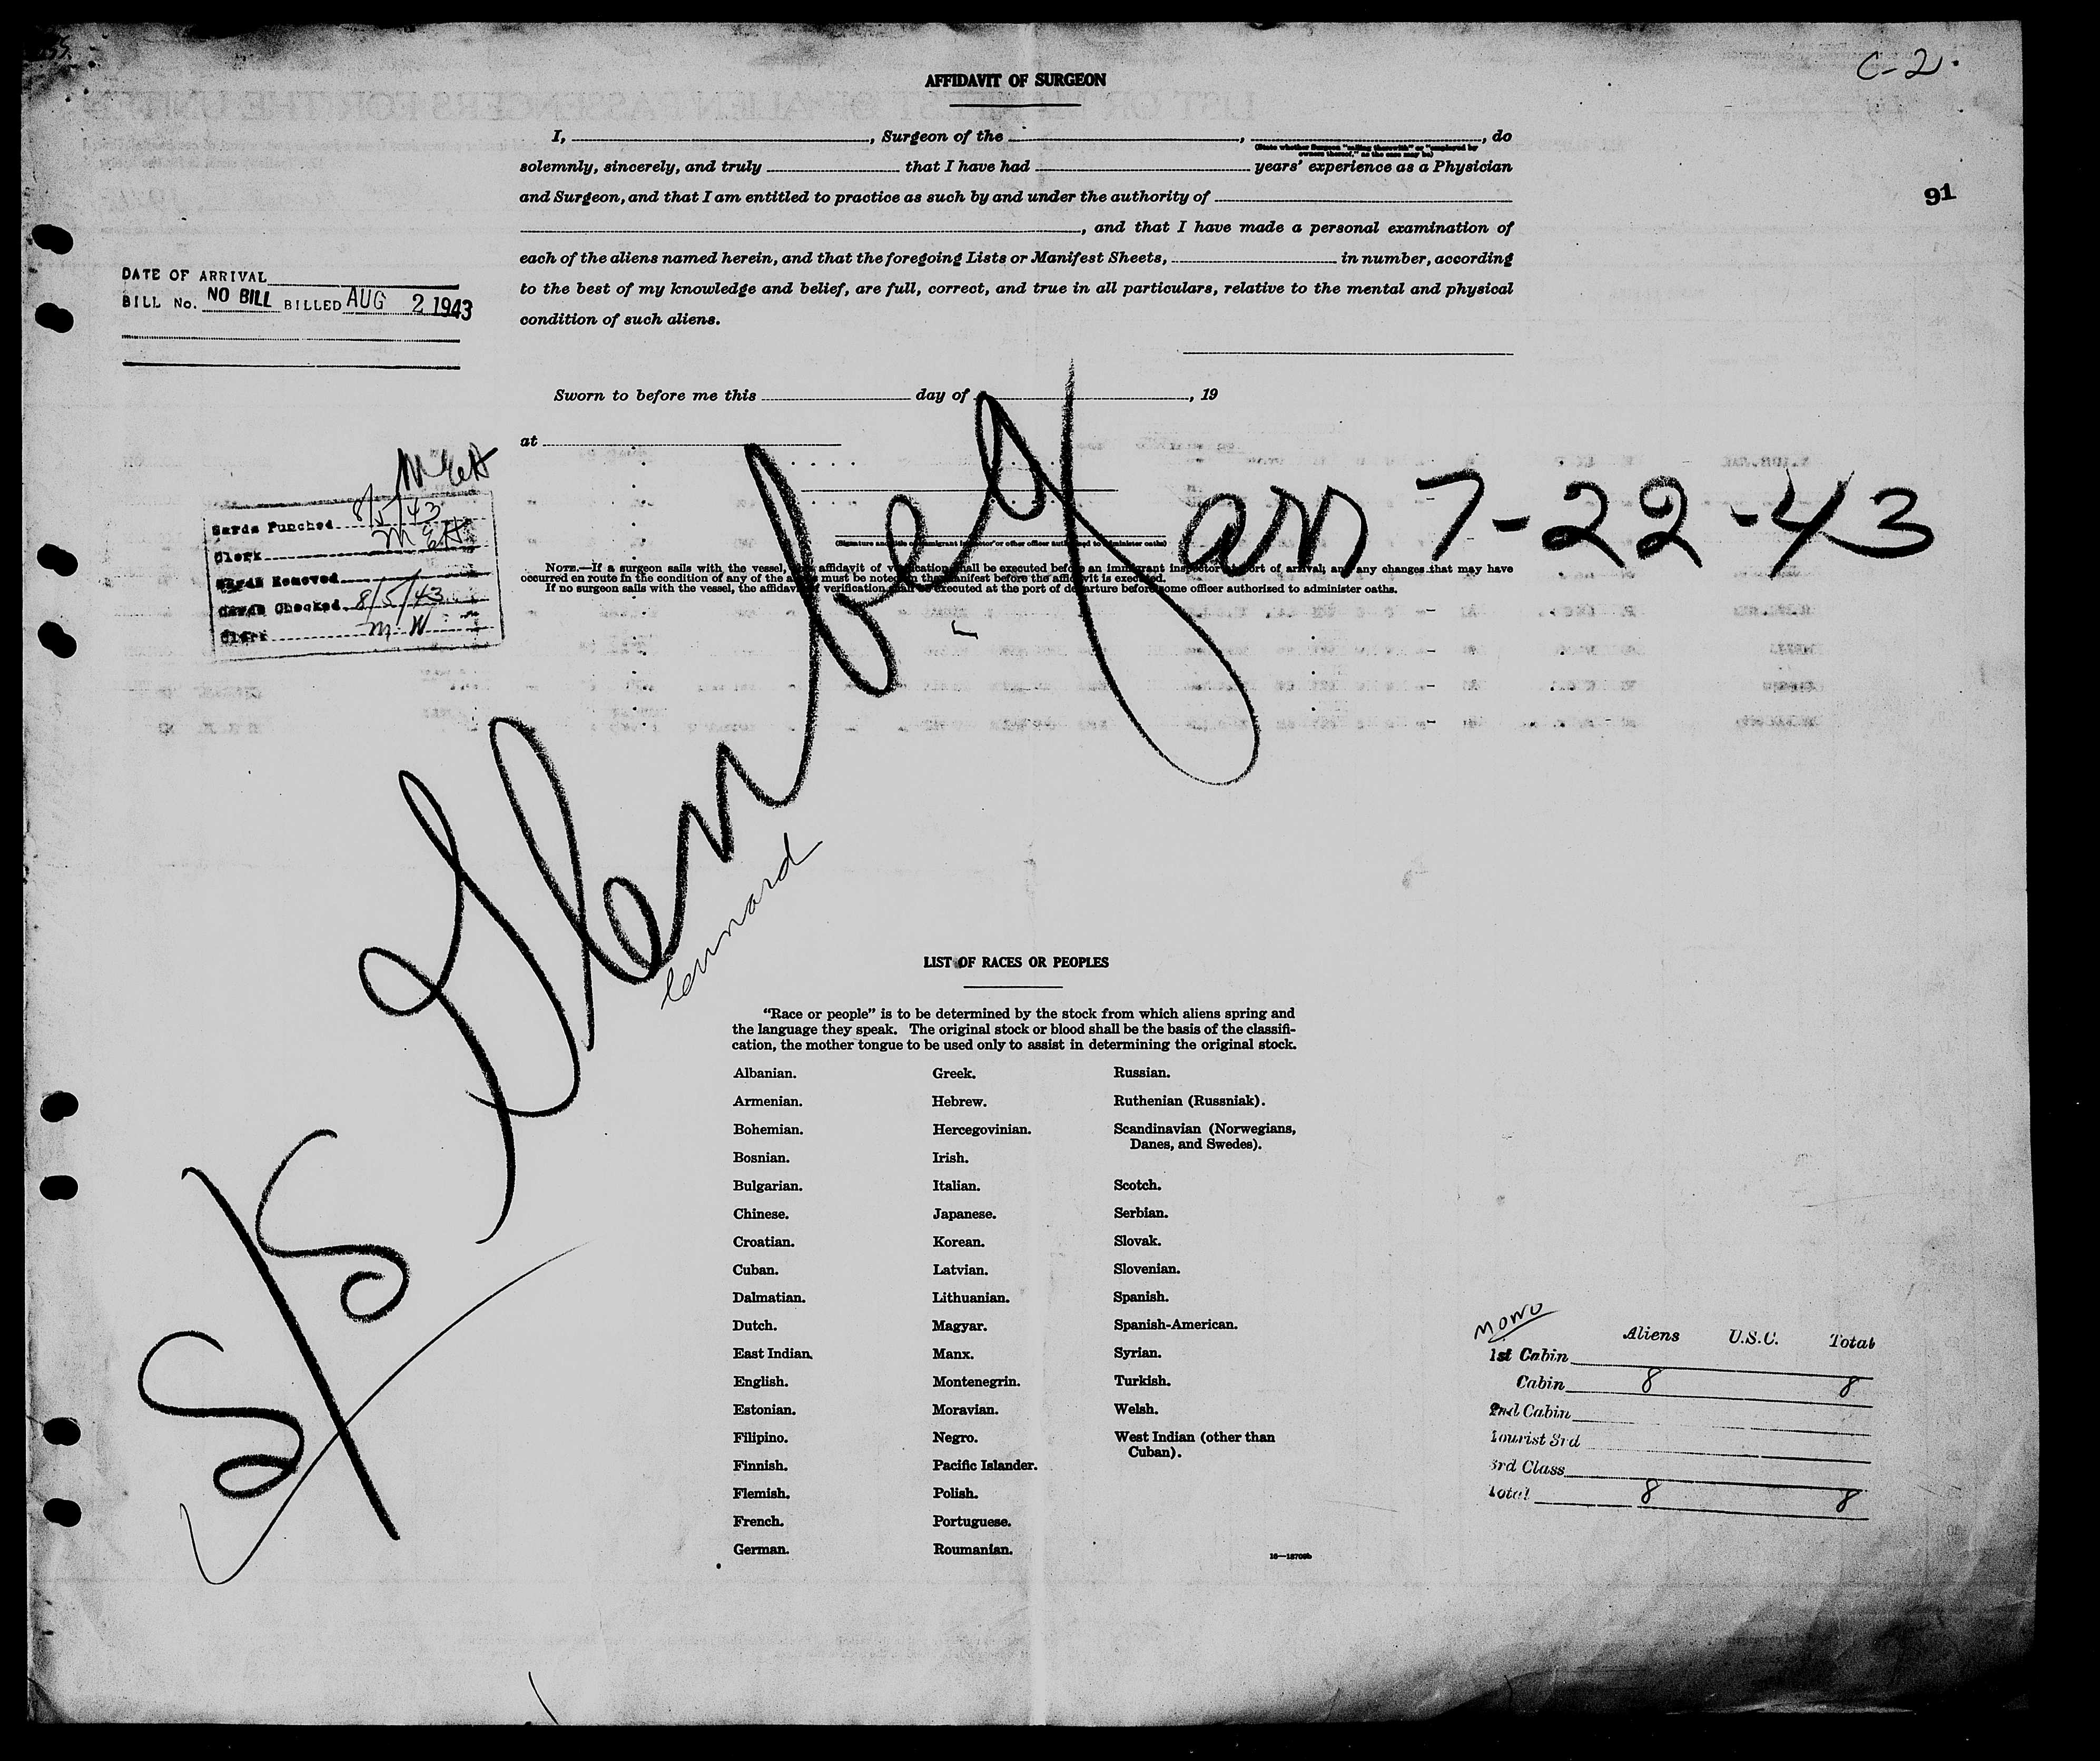 C-2
AFFIDAVIT OF SURGEON
I, , Surgeon of the , , do
(State whether Surgeon "sailing therewith" or "employed by
owners thereof," as the case may be)
solemnly, sincerely, and truly that I have had years' experience as a Physician
91
and Surgeon, and that I am entitled to practice as such by and under the authority of
, and that I have made a personal examination of
each of the aliens named herein, and that the foregoing Lists or Manifest Sheets, in number, according
to the best of my knowledge and belief, are full, correct, and true in all particulars, relative to the mental and physical
condition of such aliens.
DATE OF ARRIVAL
BILL No. NO BILL BILLED AUG 2 1943
Sworn to before me this day of , 19
at
Cards Punched 8/5/43
Clerk
Cards Removed
Cards Checked 8/5/43
Clerk M W
S/S arr 7-22-43
(Signature and title of immigrant inspector or other officer authorized to administer oaths)
NOTE.—If a surgeon sails with the vessel, the affidavit of verification shall be executed before an immigrant inspector at port of arrival; and any changes that may have
occurred en route in the condition of any of the aliens must be noted in the manifest before the affidavit is executed.
If no surgeon sails with the vessel, the affidavit of verification shall be executed at the port of departure before some officer authorized to administer oaths.
LIST OF RACES OR PEOPLES
"Race or people" is to be determined by the stock from which aliens spring and
the language they speak. The original stock or blood shall be the basis of the classifi-
cation, the mother tongue to be used only to assist in determining the original stock.
Albanian. Greek. Russian.
Armenian. Hebrew. Ruthenian (Russniak).
Bohemian. Hercegovinian. Scandinavian (Norwegians,
Danes, and Swedes).
Bosnian. Irish.
Bulgarian. Italian. Scotch.
Chinese. Japanese. Serbian.
Croatian. Korean. Slovak.
Cuban. Latvian. Slovenian.
Dalmatian. Lithuanian. Spanish.
Dutch. Magyar. Spanish-American.
East Indian. Manx. Syrian.
English. Montenegrin. Turkish.
Estonian. Moravian. Welsh.
Filipino. Negro. West Indian (other than
Cuban).
Finnish. Pacific Islander.
Flemish. Polish.
French. Portuguese.
German. Roumanian.
Aliens U.S.C. Total
1st Cabin
Cabin 8 8
2nd Cabin
Tourist 3rd
3rd Class
Total 8 8